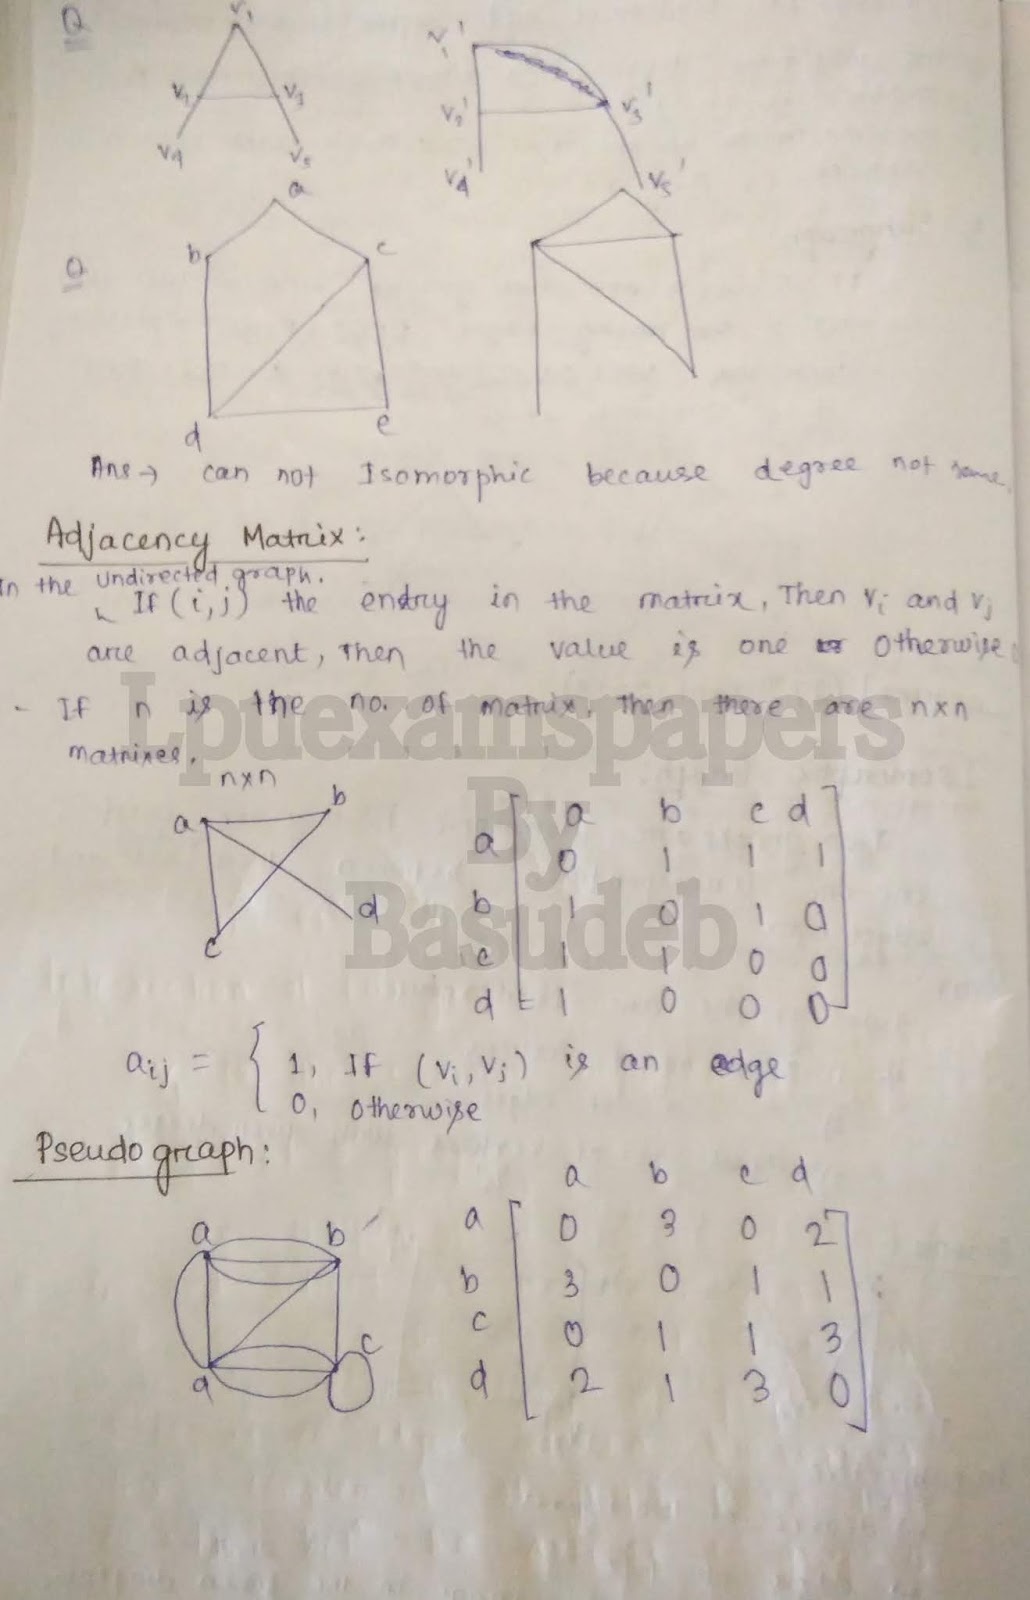 Q
v1
v2 v3
v4 v5
v1'
v2' v3'
v4' v5'
Q
a
b c
d e
Ans → can not Isomorphic because degree not same.
Adjacency Matrix:
In the undirected graph.
If (i,j) the endry in the matrix, Then vi and vj
are adjacent, Then the value is one otherwise
- If n is the no. of matrix, Then there are n×n
matrixes.
n×n
a b
c d
a b c d
a 0 1 1 1
b 1 0 1 0
c 1 1 0 0
d 1 0 0 0
aij = { 1, If (vi, vj) is an edge
0, otherwise
Pseudo graph:
a b
d c
a b c d
a 0 3 0 2
b 3 0 1 1
c 0 1 1 3
d 2 1 3 0
Lpuexamspapers
By
Basudeb